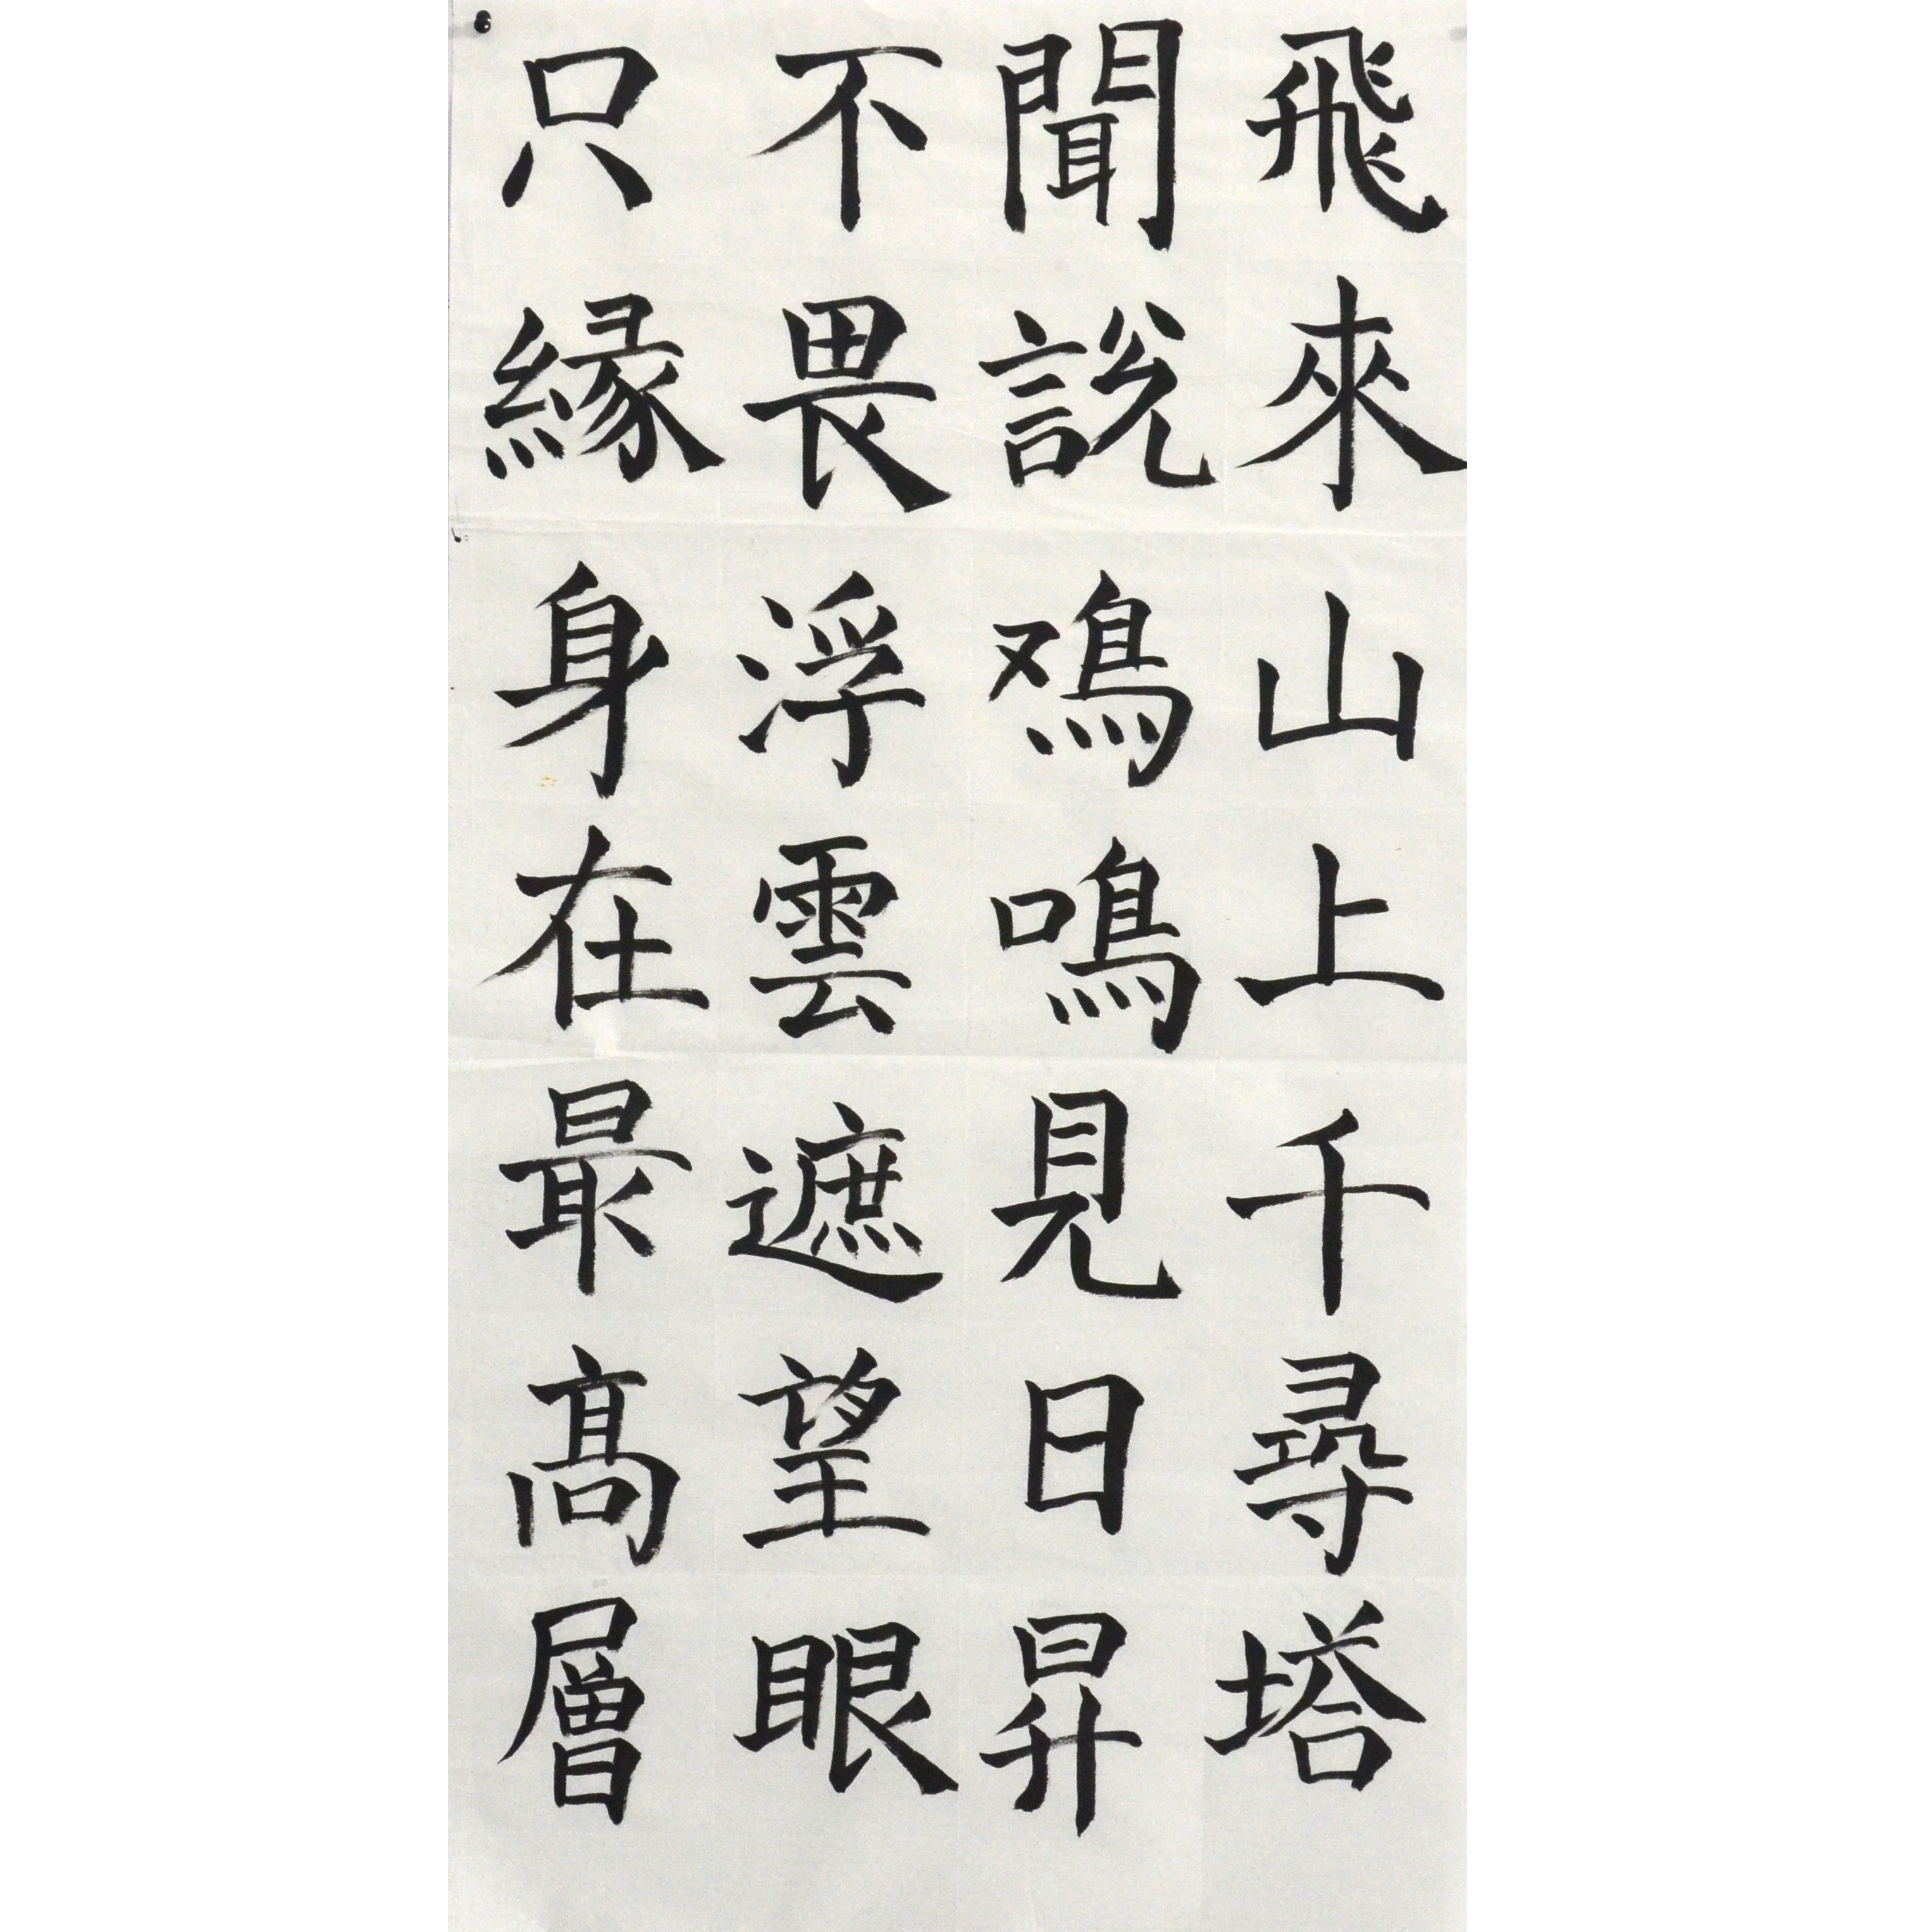 飛來山上千尋塔
聞說鳮鳴見日昇
不畏浮雲遮望眼
只縁身在最髙層